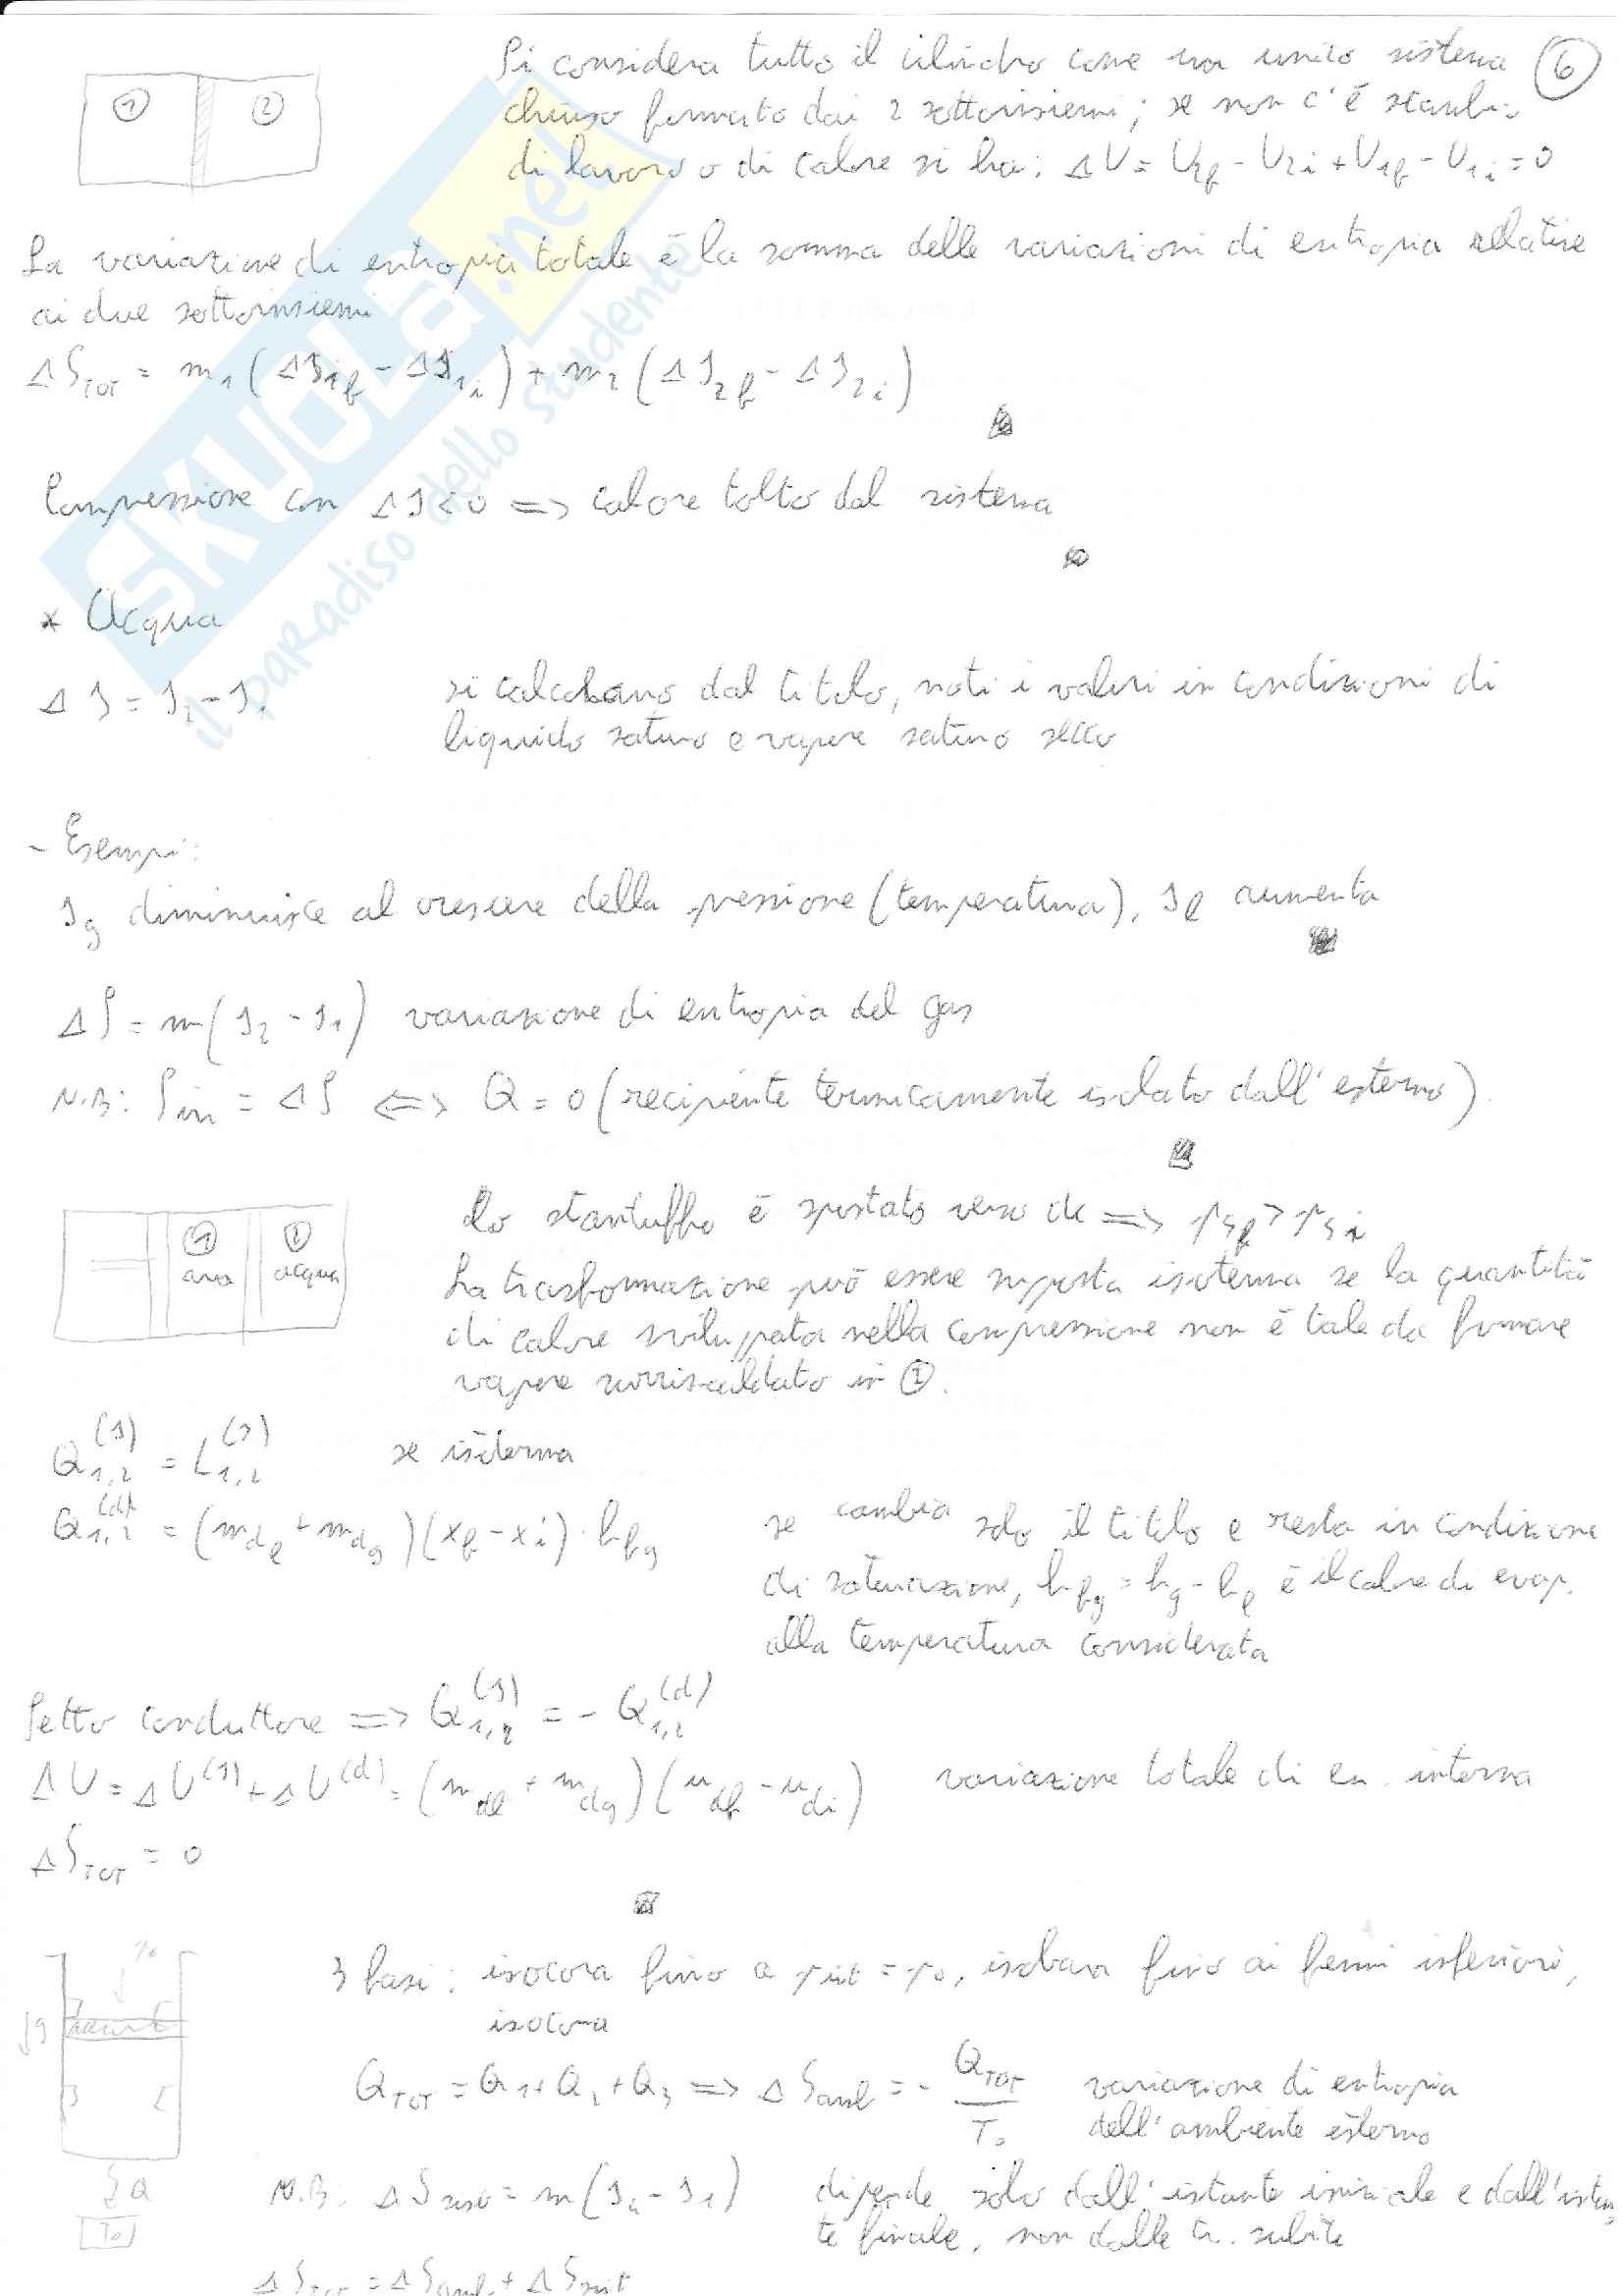 Si considera tutto il cilindro come un unico sistema
6
chiuso formato dai 2 sottoinsiemi; se non c'è scambio
di lavoro o di calore si ha: ΔU = U2f - U2i + U1f - U1i = 0
1 2
La variazione di entropia totale è la somma delle variazioni di entropia relative
ai due sottoinsiemi
ΔSTOT = m1(Δs1f - Δs1i) + m2(Δs2f - Δs2i)
Compressione con Δs<0 => calore tolto dal sistema
* Acqua
Δs = s2 - s1 si calcolano dal titolo, noti i valori in condizioni di
liquido saturo e vapore saturo secco
- Esempi:
sg diminuisce al crescere della pressione (temperatura), sl aumenta
ΔS = m(s2 - s1) variazione di entropia del gas
N.B: Sin = ΔS <=> Q = 0 (recipiente termicamente isolato dall'esterno).
Lo stantuffo è spostato verso dx => psf > psi
1 2
aria acqua
La trasformazione può essere supposta isoterma se la quantità
di calore sviluppata nella compressione non è tale da formare
vapore surriscaldato in 2.
Q1,2(s) = L1,2(s) se isoterma
Q1,2(d) = (mdl + mdg)(xf - xi)·hfg se cambia solo il titolo e resta in condizione
di saturazione, hfg = hg - hl è il calore di evap.
alla temperatura considerata
Setto conduttore => Q1,2(s) = - Q1,2(d)
ΔU = ΔU(s) + ΔU(d) = (mdl + mdg)(udf - udi) variazione totale di en. interna
ΔSTOT = 0
3 fasi: isocora fino a pint = p0, isobara fino ai fermi inferiori,
isocora
p0
g
QTOT = Q1 + Q2 + Q3 => ΔSamb = - QTOT/T0 variazione di entropia
dell'ambiente esterno
Q
T0
N.B: ΔSsist = m(s4 - s1) dipende solo dall'istante iniziale e dall'istan-
te finale, non dalle tr. subite
ΔSTOT = ΔSamb + ΔSsist
SKUOLA.net
il paradiso dello studente